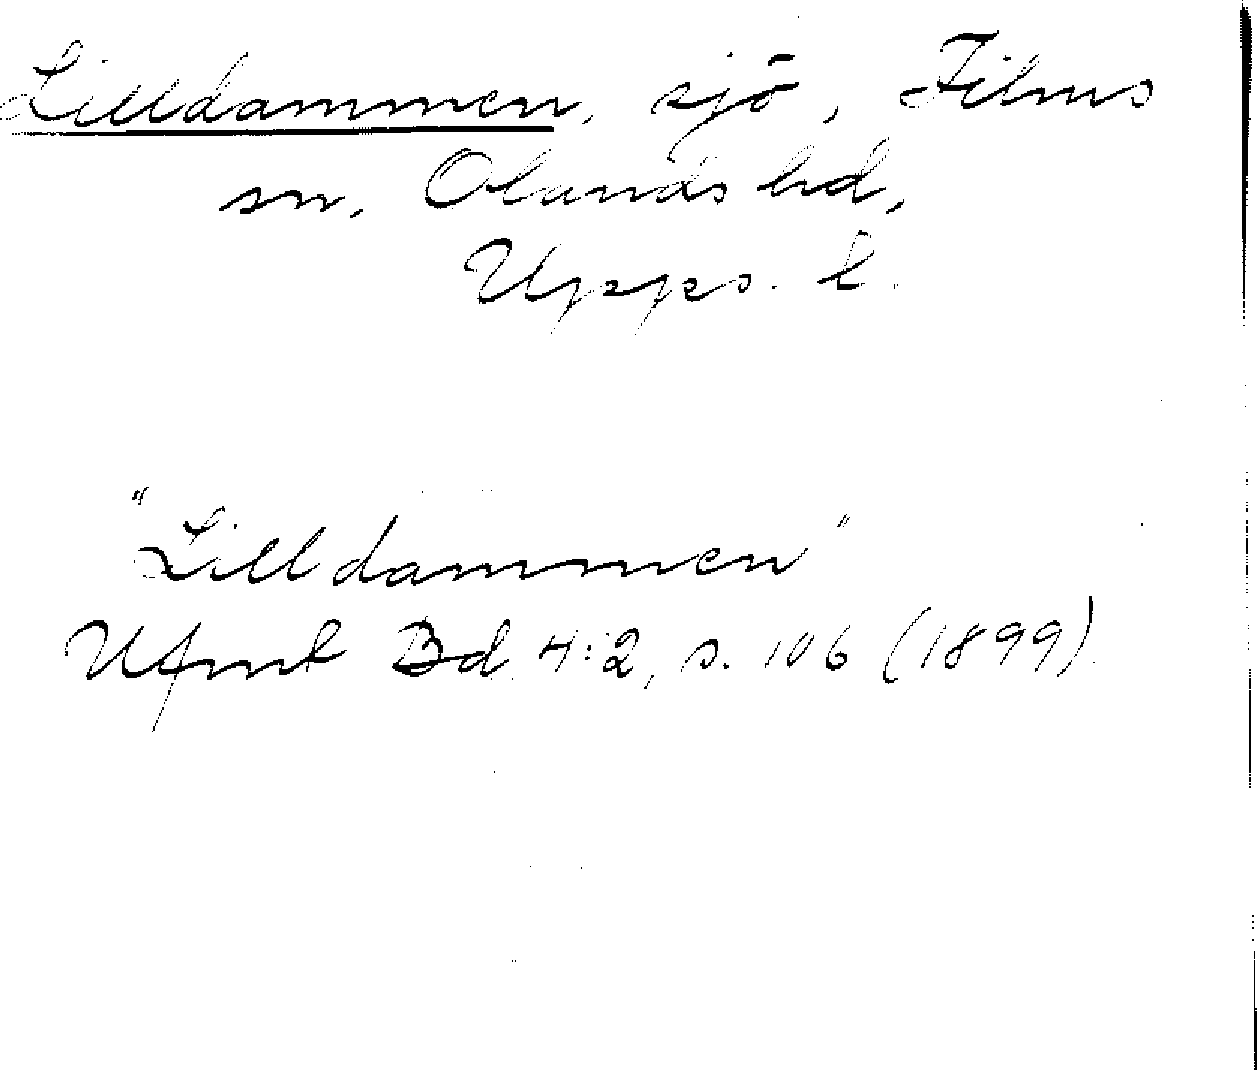 Lilldammen, sjö, Films
sn, Olands hd,
Upps. l.
"Lilldammen"
Ufmt Bd 4:2, s. 106 (1899).